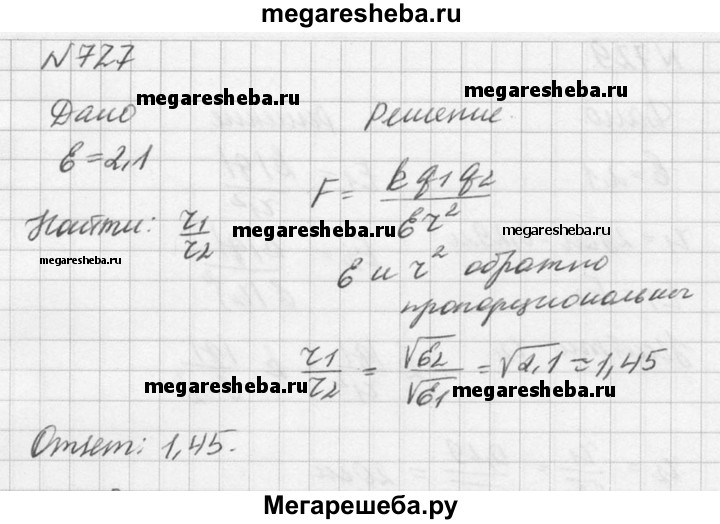 megaresheba.ru
№727
Дано
Решение.
megaresheba.ru
megaresheba.ru
ε=2,1
F = k q1 q2 / ε r²
Найти: r1/r2
megaresheba.ru
megaresheba.ru
megaresheba.ru
ε и r² обратно
пропорциональны
r1/r2 = √ε2/√ε1 = √2,1 ≈ 1,45
megaresheba.ru
megaresheba.ru
Ответ: 1,45.
Мегарешеба.ру